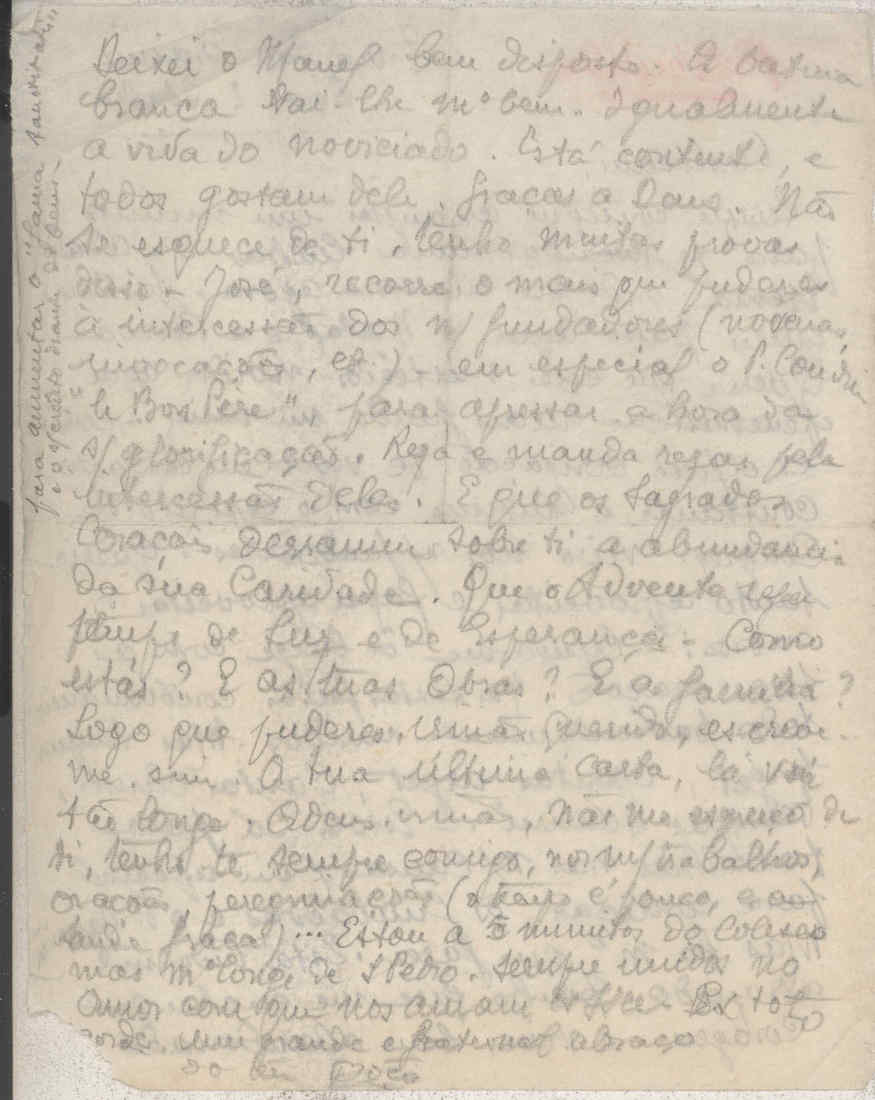 Deixei o Manel bem disposto. A batina
branca vai-lhe mº bem. Igualmente
a vida do noviciado. Está contente, e
todos gostam dele. Graças a Deus. Não
se esquece de ti, tenho muitas provas
disso. José, recorre o mais que puderes
à intercessão dos n/ fundadores (novenas,
invocações, etc.) - em especial o P. Coudrin
"le Bon Père", para apressar a hora da
s/ glorificação. Reza e manda rezar pela
intercessão deles. E que os Sagrados
Corações derramem sobre ti a abundância
da sua Caridade. Que o Advento seja
tempo de Luz e de Esperança - Como
estás? E as tuas Obras? E a família?
Logo que puderes, irmão querido, escreve-
me, sim. A tua última carta, lá vai
tão longe. Adeus, irmão, não me esqueço de
ti, tenho-te sempre comigo, nos m/ trabalhos,
orações, peregrinações (o tempo é pouco, e a
saúde fraca!)... Estou a 5 minutos do Coliseo
mas mº longe de S Pedro. Sempre unidos no
Amor com que nos amam os Ex toto
corde, um grande e fraternal abraço
do teu
para aumentar o "fama sanctitatis"